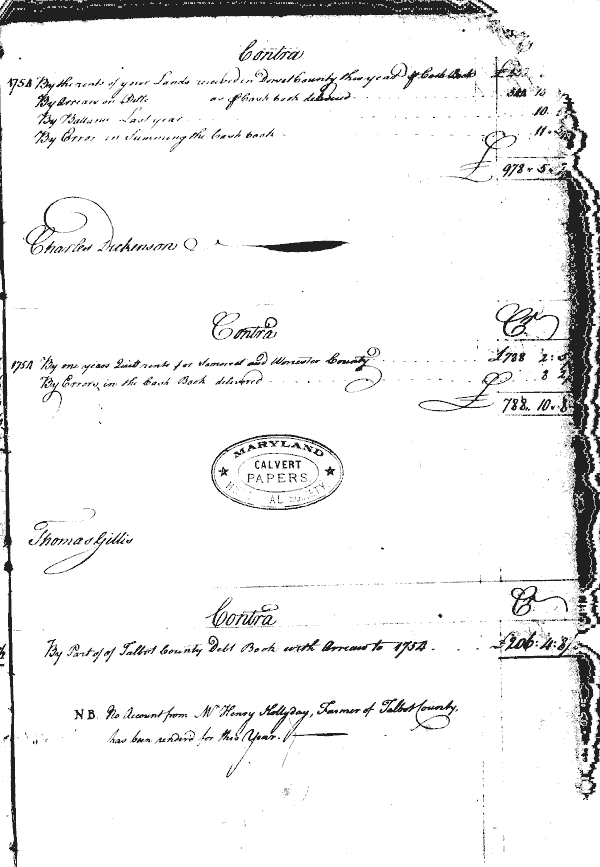 Contra
1754 By the rents of your Lands received in Dorset County this year Cash Book £
By Arrears on Ditto as Cash book delivered
By Ballance Last year 10
By Error in Summing the Cash book 11
£ 978 „ 5 „
Charles Dickenson
Contra Cr
1754 By one years Quitt rents for Somerset and Worcester County £788 2:
By Errors in the Cash Book delivered 8
£ 788 „ 10 „ 8
MARYLAND
CALVERT
PAPERS
Thomas Gillis
Contra Cr
By Part of of Talbot County Debt Book with Arrears to 1754 £206:4:8
NB. No Account from Mr Henry Hollyday, Farmer of Talbot County,
has been renderd for this Year.